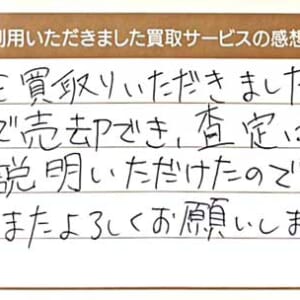 利用いただきました買取サービスの感想
を買取りいただきました
で売却でき、査定に
説明いただけたので
またよろしくお願いしま